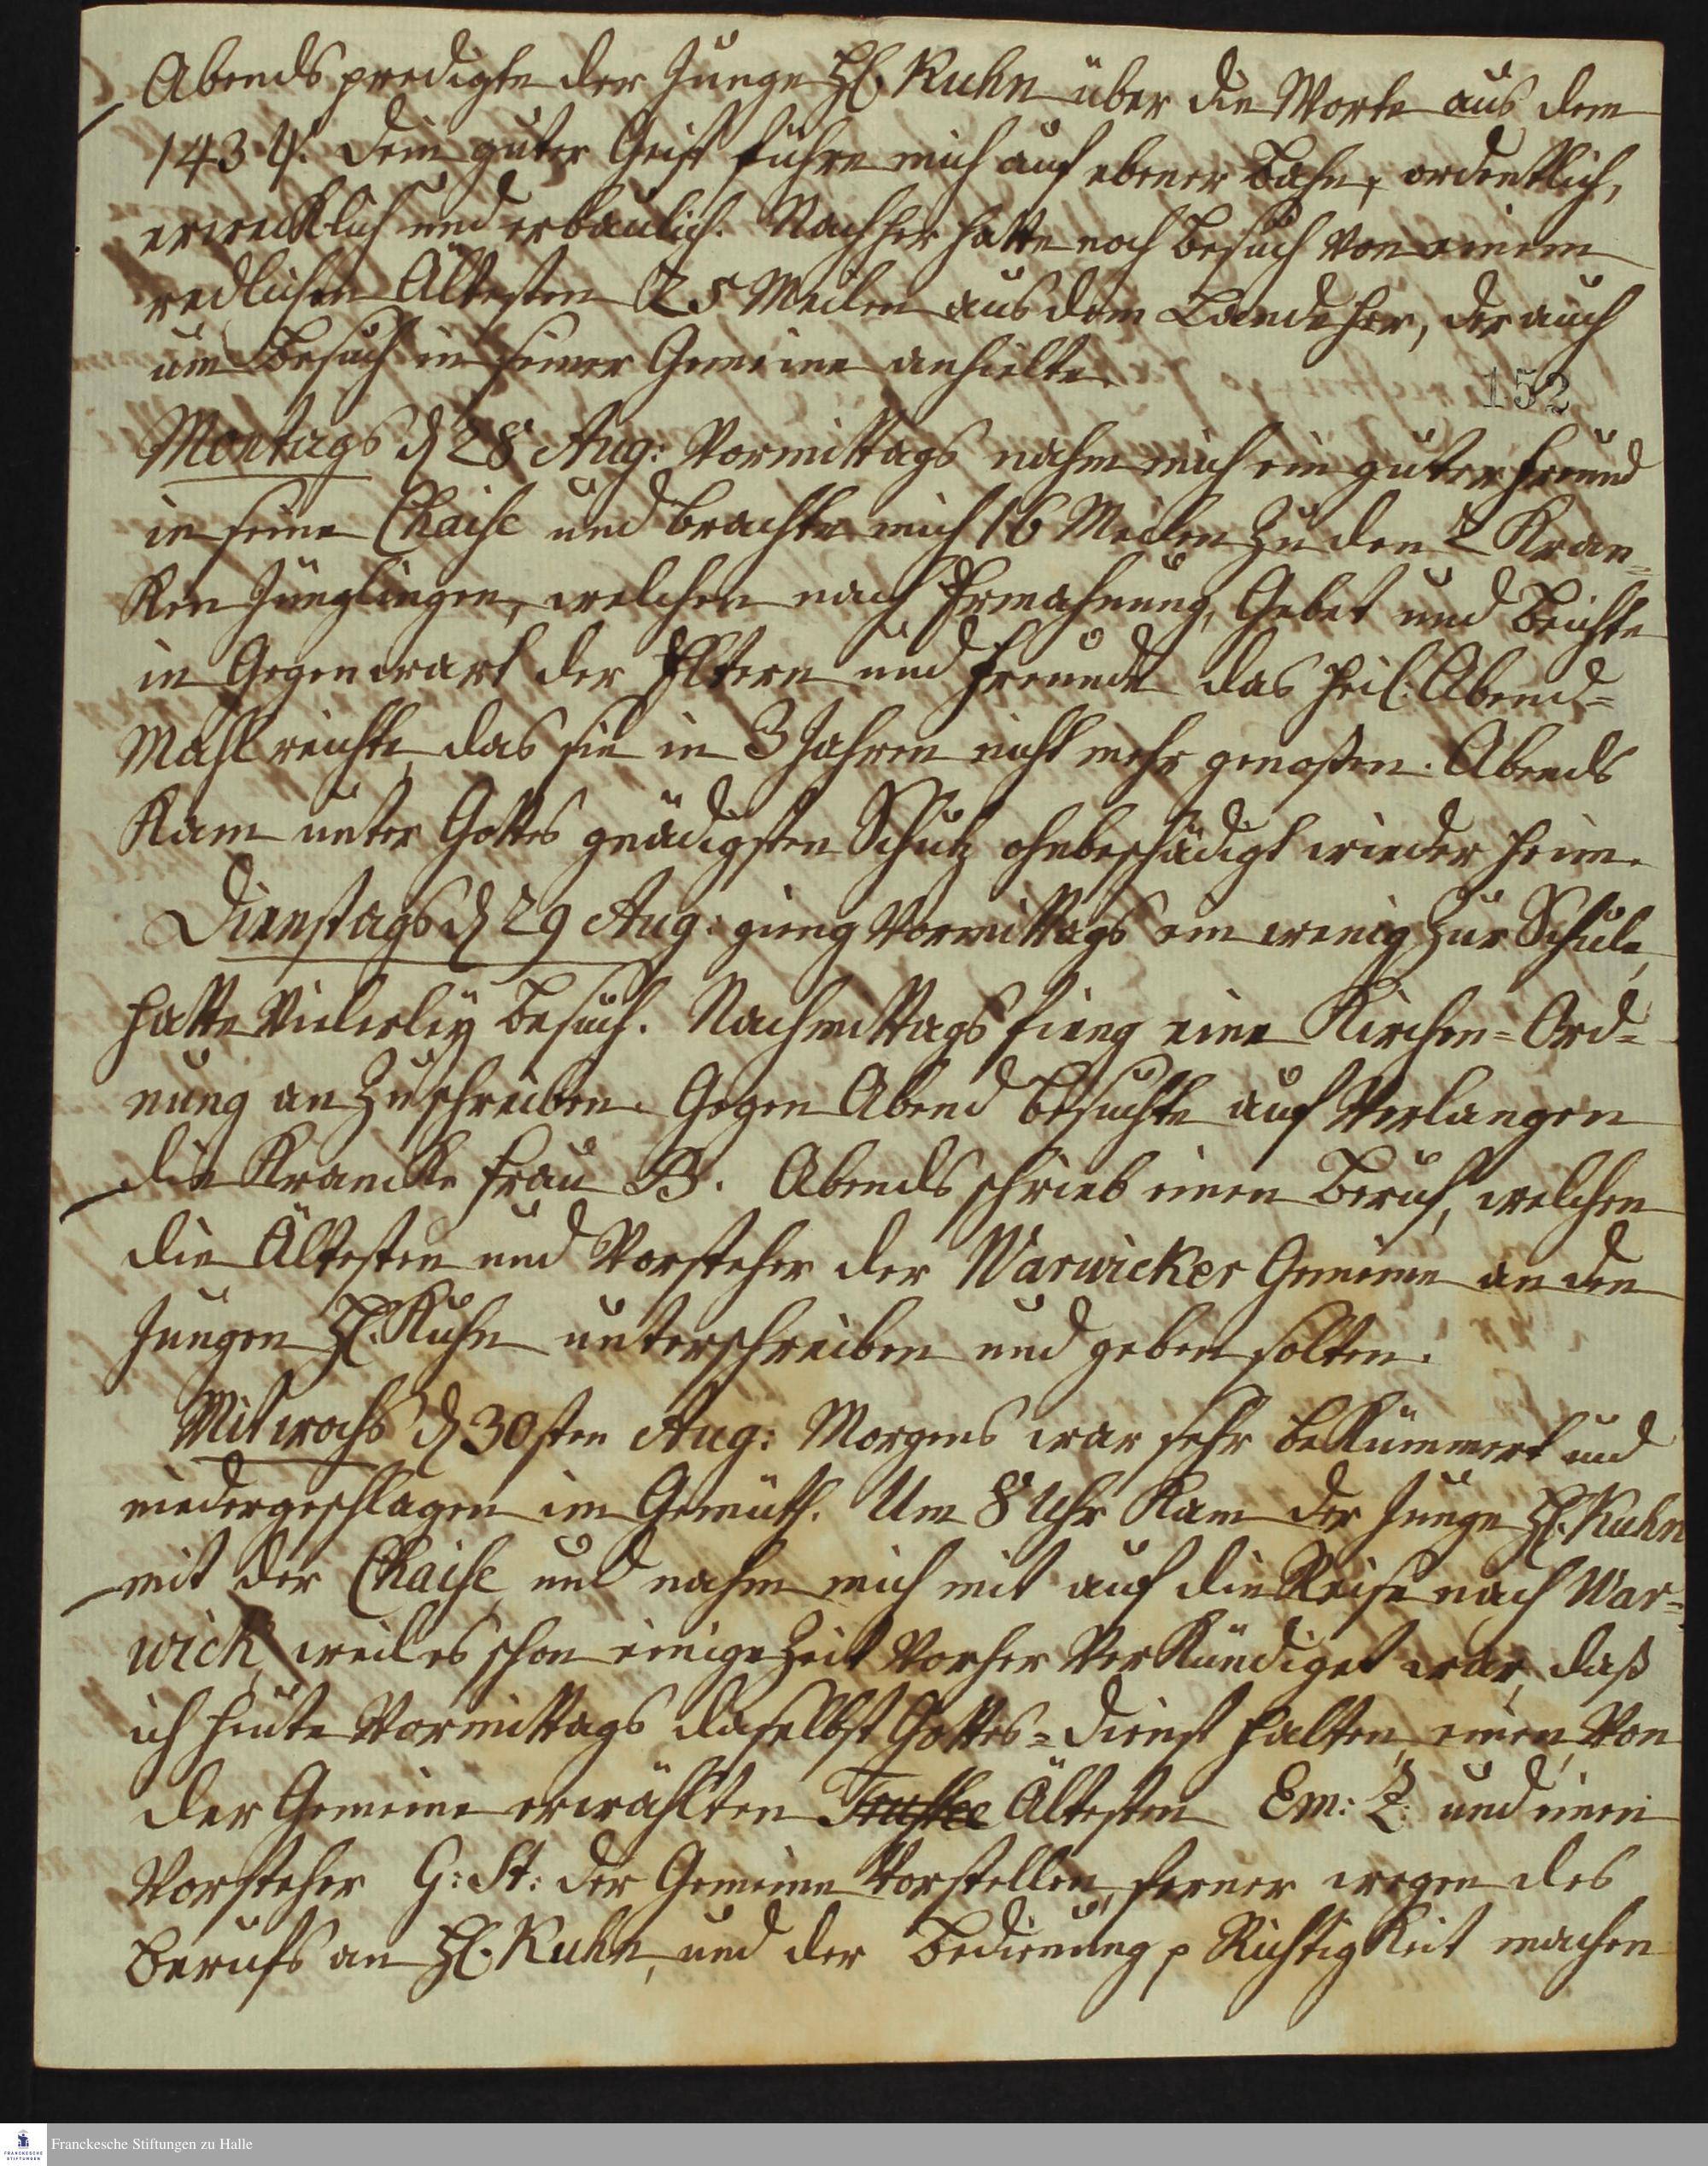 Abends predigte der junge H. Kuhn über die Worte aus dem
143 ψ. dein guter Geist führe mich auf ebener Bahn, ordentlich,
erwecklich und erbaulich. Nachher hatte noch Besuch von einem
redlichen Ältesten 25 Meilen aus dem Lande her, der auch
um Besuch in seiner Gemeine anhielte.
152
Montags d 28 Aug: Vormittags nahm mich ein guter Freund
in seine Chaise und brachte mich 16 Meilen zu den 2 Kran=
ken Jünglingen, welchen nach Ermahnung, Gebet und Beichte
in Gegenwart der Eltern und Freunde das heil. Abend=
Mahl reichte, das sie in 3 Jahren nicht mehr genoßen. Abends
kam unter Gottes gnädigsten Schutz ohnbeschädigt wieder heim.
Dienstags d 29 Aug: gieng Vormittags ein wenig zur Schule,
hatte Vielerley Besuch. Nachmittags fieng eine Kirchen=Ord=
nung an zu schreiben. Gegen Abend besuchte auf Verlangen
die Krancke Frau B. Abends schrieb einen Beruf, welchen
die Ältesten und Vorsteher der Warwicker Gemeine an den
jungen H. Kuhn unterschreiben und geben solten.
Mitwochs d 30sten Aug: Morgens war sehr bekümmert und
niedergeschlagen im Gemüth. Um 8 Uhr kam der junge H. Kuhn
mit der Chaise, und nahm mich mit auf die Reise nach War=
wick, weil es schon einige Zeit vorher verkündiget war, daß
ich heute Vormittags daselbst Gottes=dienst halten, einen von
der Gemeine erwählten Trustee Ältesten Em: Z: und einen
Vorsteher G: St: der Gemeine vorstellen, ferner wegen des
Berufs an H. Kuhn, und der Bedienung p Richtigkeit machen
Franckesche Stiftungen zu Halle